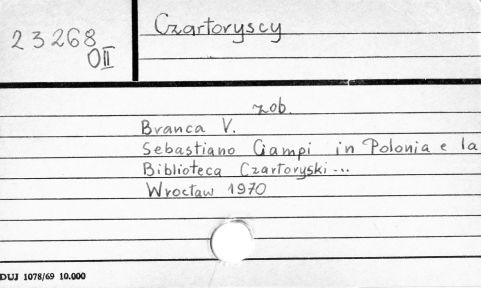 23268
OII
Czartoryscy
zob.
Branca V.
Sebastiano Ciampi in Polonia e la
Biblioteca Czartoryski...
Wrocław 1970
DUJ 1078/69 10.000